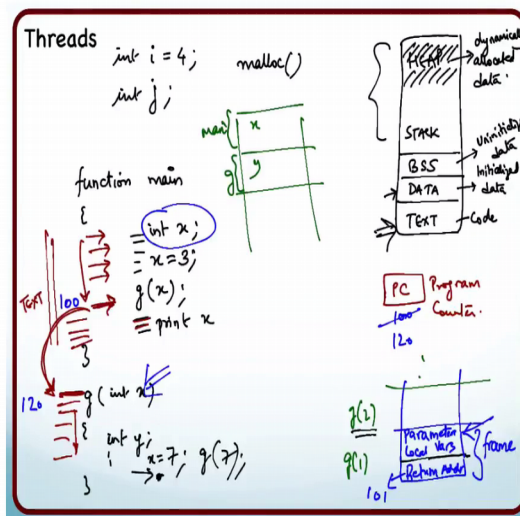 Threads
int i = 4;
int j;
malloc()
main
x
g
y
HEAP
dynamically allocated data.
STACK
BSS
Uninitialized data
DATA
Initialized data
TEXT
Code
function main
{
int x;
x = 3;
100
g(x);
print x
}
TEXT
120
g(int x)
{
int y;
x = 7; g(7);
}
PC
Program Counter.
100
120
g(2)
g(1)
Parameter
Local Vars
Return Addr
frame
101